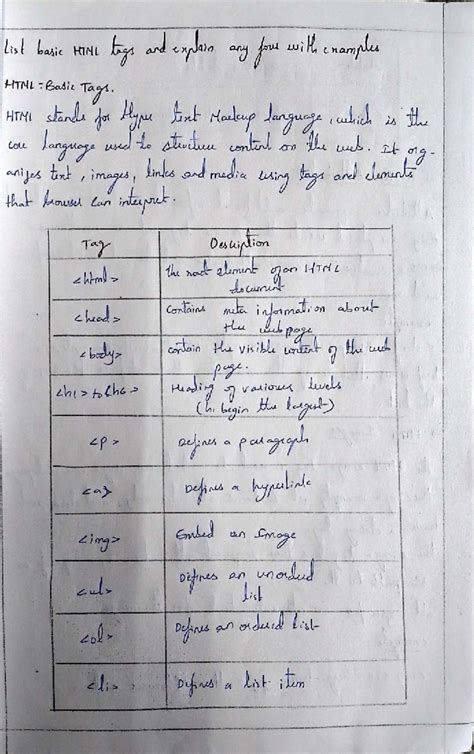 List basic HTML tags and explain any four with examples
HTML = Basic Tags.
HTML stands for Hyper text Markup language, which is the
core language used to structure content on the web. It org-
anizes text, images, links and media using tags and elements
that browser can interpret.
Tag Description
<html> the root element of an HTML
document
<head> Contains meta information about
the webpage
<body> contain the visible content of the web
page.
<h1> to <h6> Heading of various levels
(h1 begin the largest)
<p> Defines a paragraph
<a> Defines a hyperlink
<img> Embed an Image
<ul> Defines an unordered
list
<ol> Defines an ordered list
<li> Defines a list item